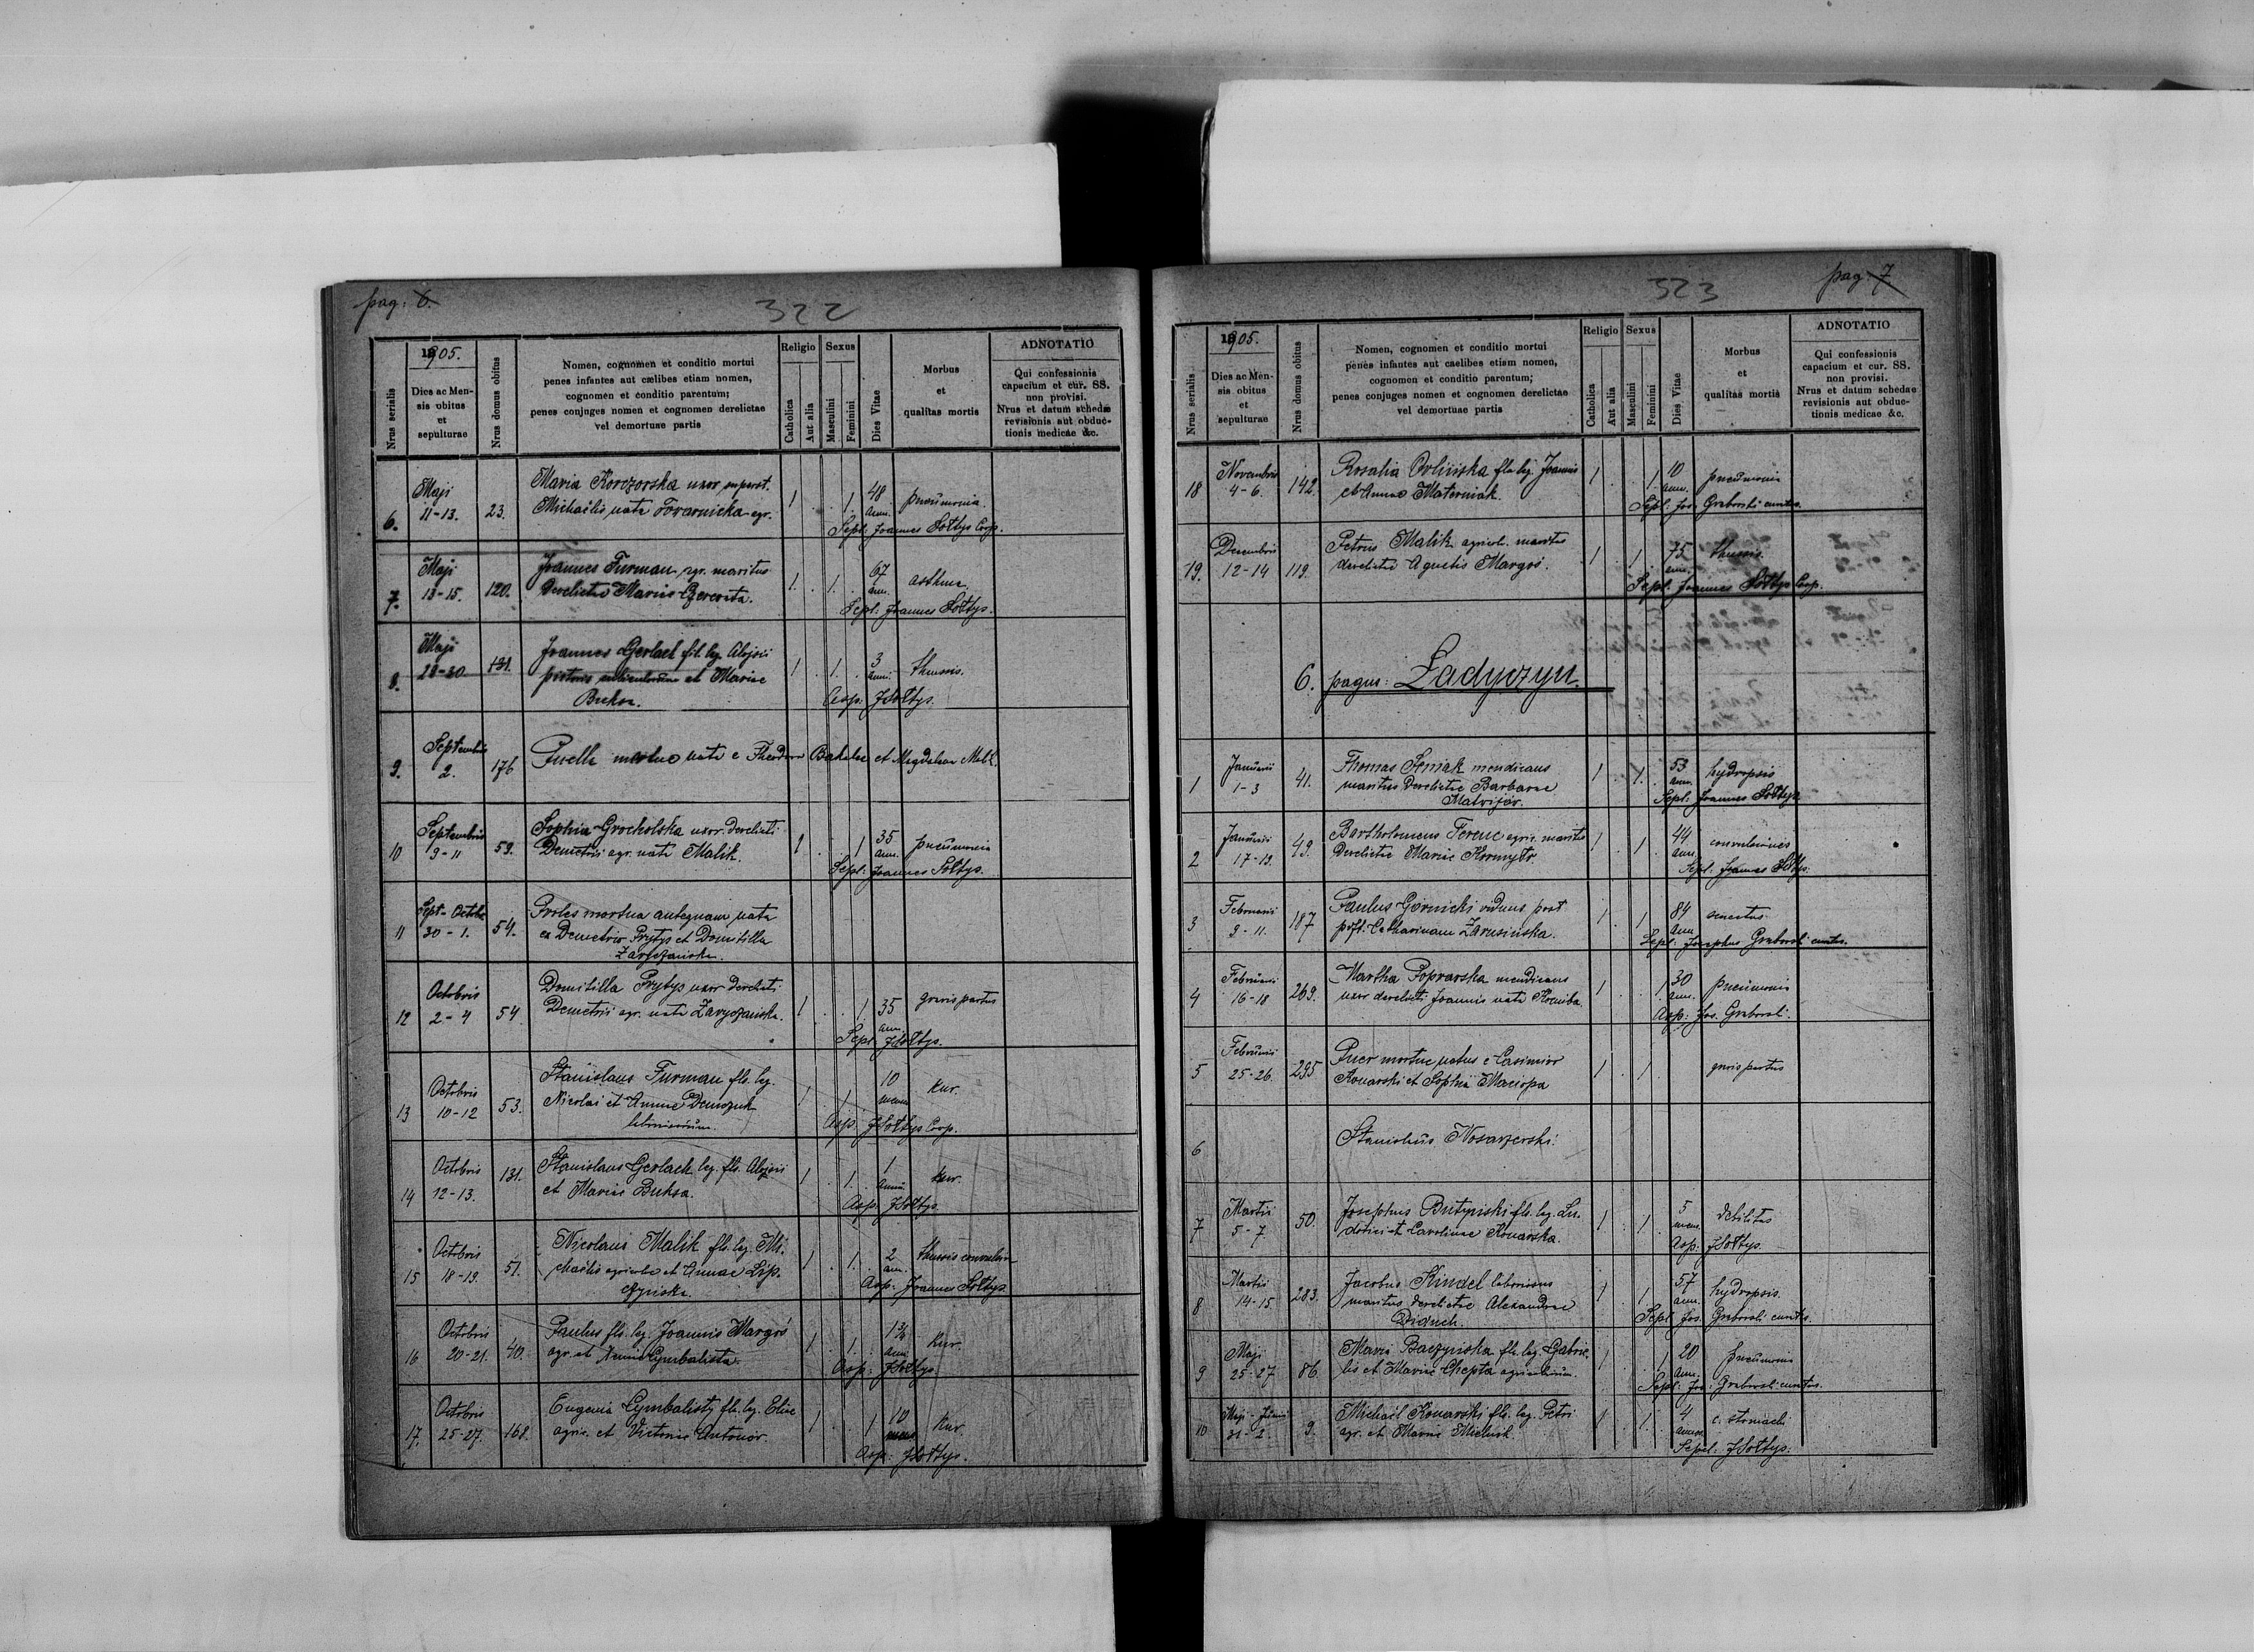 pag: 6.
322
Nrus serialis
1905.
Dies ac Men-
sis obitus
et
sepulturae
Nrus domus obitus
Nomen, cognomen et conditio mortui
penes infantes aut cælibes etiam nomen,
cognomen et conditio parentum;
penes conjuges nomen et cognomen derelictae
vel demortuae partis
Religio
Catholica
Aut alia
Sexus
Masculini
Feminini
Dies Vitae
Morbus
et
qualitas mortis
ADNOTATIO
Qui confessionis
capacium et cur. SS.
non provisi.
Nrus et datum schedæ
revisionis aut obduc-
tionis medicae &c.
6. Maji 11-13. 23.
Maria Korczorska uxor superst.
Michaëlis nata Tovarnicka agr.
1 . . 1. 48 ann. pneumonia.
Sepl. Joannes Sołtys Coop.
7. Maji 13-15. 120.
Joannes Furman agr. maritus
derelictae Mariae
1. . 1. . 67 ann. asthma.
Sepl. Joannes Sołtys.
8. Maji 28-30 131.
Joannes Gerlach fil. leg. Alojsii
et Mariae
Buksa.
1 . 1. . 3 ann. thussis.
Asp. JSołtys.
9. Septembris 2. 176
Puella mortuo nata e Theodoro Bakalec et Magdalena Malk.
10 Septembris 9-11 59.
Sophia Grocholska uxor derelicti
Demetrii agr. nata Malik.
1 . . 1 35 ann. pneumonia
Sepl: Joannes Sołtys.
11 Sept-Octobr 30-1. 54.
Proles mortua antequam nata
ex Demetrio Prytys et Domitilla
12 Octobris 2-4 54.
Domitilla Prytys uxor derelicti
Demetrii agr. nata
1 . . 1. 35 ann. gravis partus
Sepl JSołtys.
13 Octobris 10-12 53.
Stanislaus Furman fls. leg.
Nicolai et Annae Demczuk
1 . 1 . 10 mens. kur.
Asp. JSołtys Coop.
14 Octobris 12-13. 131.
Stanislaus Gerlach leg. fls. Alojsii
et Mariae Buksa.
1 . 1. . 1 anni kur.
Asp. JSołtys.
15 Octobris 18-19. 51.
Nicolaus Malik fls. leg. Mi-
chaëlis agricolae et Annae Lip-
czynska.
1 . 1. . 2 ann. thussis
Asp. Joannes Sołtys
16 Octobris 20-21. 40.
Paulus fls. leg. Joannis Margoś
agr. et Cymbalista.
1 . 1. . ann kur.
Asp: JSołtys
17. Octobris 25-27. 168.
Eugenia Cymbalisty fls. leg. Eliae
agric. et Victoriae Antonór.
1 . . 1 10 mens kur.
Asp. JSołtys.
323
pag. 7
Nrus serialis
1905.
Dies ac Men-
sis obitus
et
sepulturae
Nrus domus obitus
Nomen, cognomen et conditio mortui
penes infantes aut caelibes etiam nomen,
cognomen et conditio parentum;
penes conjuges nomen et cognomen derelictae
vel demortuae partis
Religio
Catholica
Aut alia
Sexus
Masculini
Feminini
Dies Vitae
Morbus
et
qualitas mortis
ADNOTATIO
Qui confessionis
capacium et cur. SS.
non provisi.
Nrus et datum schedae
revisionis aut obduc-
tionis medicae &c.
18 Novembris 4-6. 142.
Rosalia fla leg. Joannis
et Annae Materniak.
1 . . 1 10 ann. pneumonia
Sepl: Jos. Graborski curatus.
19. Decembris 12-14 119.
Petrus Malik agricola maritus
derelictae Agnetis Margoś.
1 . 1 . 75 ann. thussis.
Sepl: Joannes Sołtys Coop.
6. pagus: Ładyczyn.
1 Januarii 1-3 41.
Thomas Seniak mendicans
maritus derelictae Barbarae
Matvijór.
1 . 1. . 53 ann. hydropsis
Sepl: Joannes Sołtys
2 Januarii 17-19. 49.
Bartholomeus Ferenc agric. maritus
derelictae Mariae
1 . 1 . 44 ann. convulsiones
Sepl: Joannes Sołtys.
3 Februarii 9-11. 187
Paulus Górnicki viduus post
Catharinam Zarusińska.
1 . 1 . 84 ann senectus
Sepl. Josephus Graborski curatus.
4 Februarii 16-18 269.
Martha Poprarska mendicans
uxor derelicti Joannis nata
1 . . 1. 30 ann. pneumonia
Asp: Jos. Graborski.
5 Februarii 25-26. 295
Puer mortuo natus e Casimiro
Konarski et Sophia
1 . 1 . gravis partus
6
Stanislaus
7 Martii 5-7 50.
Josephus Butyński fls. leg. Lu-
dovici et Carolinae Konarska.
1 . 1. . 5 mens. debilitas
Asp. JSołtys.
8 Martii 14-15 283.
Jacobus Kindel laboriosus
maritus derelictae Alexandrae
Diduch.
1 . 1 . 57 ann. hydropsis.
Sepl Jos. Graborski curatus.
9 Maji 25-27 86.
Maria Baczyńska fls. leg. Gabrie-
lis et Mariae Chepta agricolarum.
1 . . 1 20 ann. pneumonia
Sepl: Jos: Graborski curatus.
10 Maji-Junii 31-2 9.
Michaël Konarski fls. leg. Petri
agr. et Mariae
1 . 1. . 4 c. stomachi
Sepel: JSołtys.